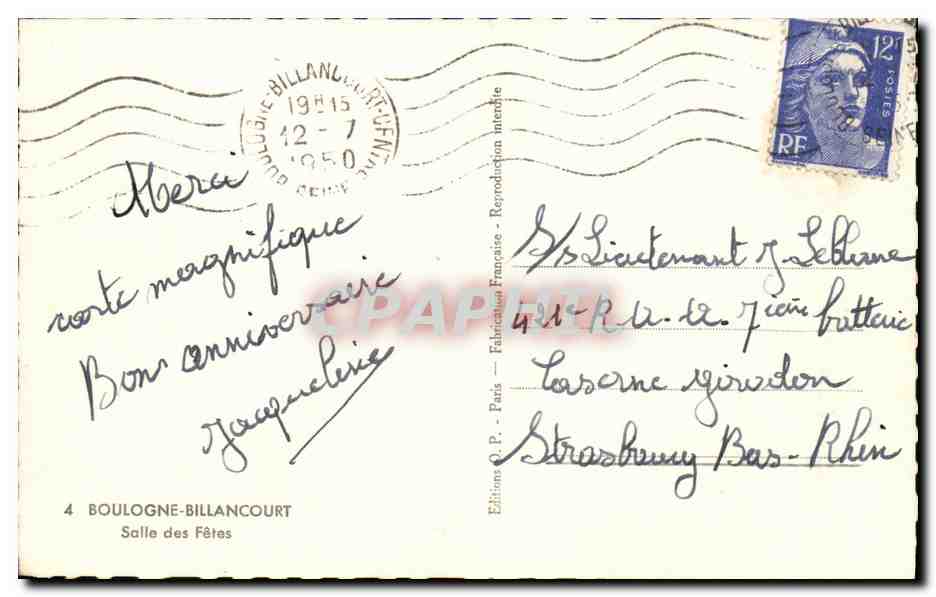 BOULOGNE-BILLANCOURT-CENTRE
19H15
12-7
1950
SEINE
12F
POSTES
RF
Merci
carte magnifique
Bon anniversaire
Jacqueline
4 BOULOGNE-BILLANCOURT
Salle des Fêtes
Editions O. P. - Paris — Fabrication Française - Reproduction interdite
S/s Lieutenant J Leblanc
421e R A. A. 7ième battaie
Caserne Girodon
Strasbourg Bas-Rhin
CPAPHIL